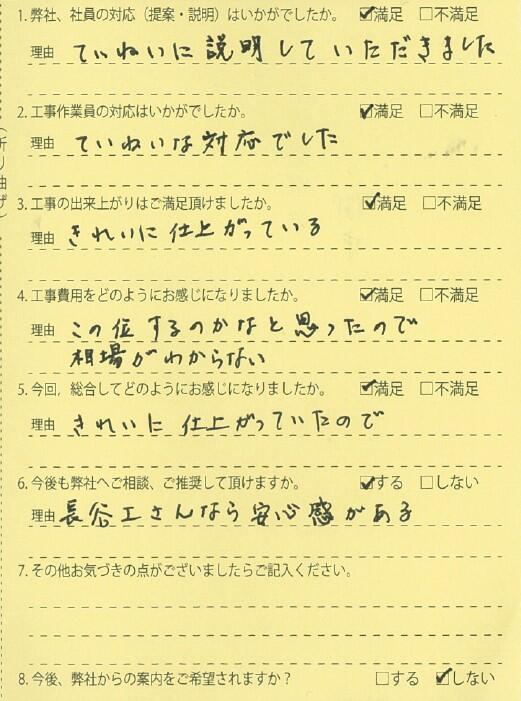 1.弊社、社員の対応（提案・説明）はいかがでしたか。 ☑満足 □不満足
理由 ていねいに説明していただきました
2.工事作業員の対応はいかがでしたか。 ☑満足 □不満足
理由 ていねいな対応でした
3.工事の出来上がりはご満足頂けましたか。 ☑満足 □不満足
理由 きれいに仕上がっている
4.工事費用をどのようにお感じになりましたか。 ☑満足 □不満足
理由 この位するのかなと思ったので
相場がわからない
5.今回，総合してどのようにお感じになりましたか。 ☑満足 □不満足
理由 きれいに仕上がっていたので
6.今後も弊社へご相談、ご推奨して頂けますか。 ☑する □しない
理由 長谷工さんなら安心感がある
7.その他お気づきの点がございましたらご記入ください。
8.今後、弊社からの案内をご希望されますか？ □する ☑しない